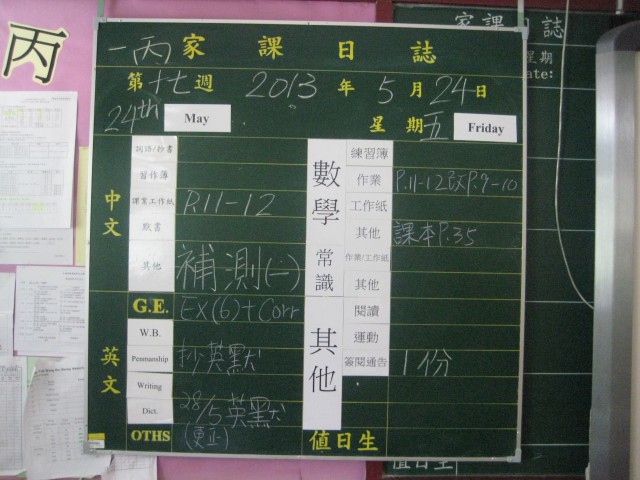 丙
一丙 家課日誌
第十七週 2013年5月24日
24th May 星期五 Friday
中文
詞語/抄書
習作簿
課業工作紙 P.11-12
默書
其他 補測(一)
英文
G.E. EX(6)+Corr
W.B.
Penmanship 抄英默
Writing
Dict. 28/5英默
OTHS (更正)
數學
練習簿
作業 P.11-12改P.9-10
工作紙
其他 課本P.35
常識
作業/工作紙
其他
其他
閱讀
運動
簽閱通告 1份
值日生
家課日誌
星期
Date:
值日生